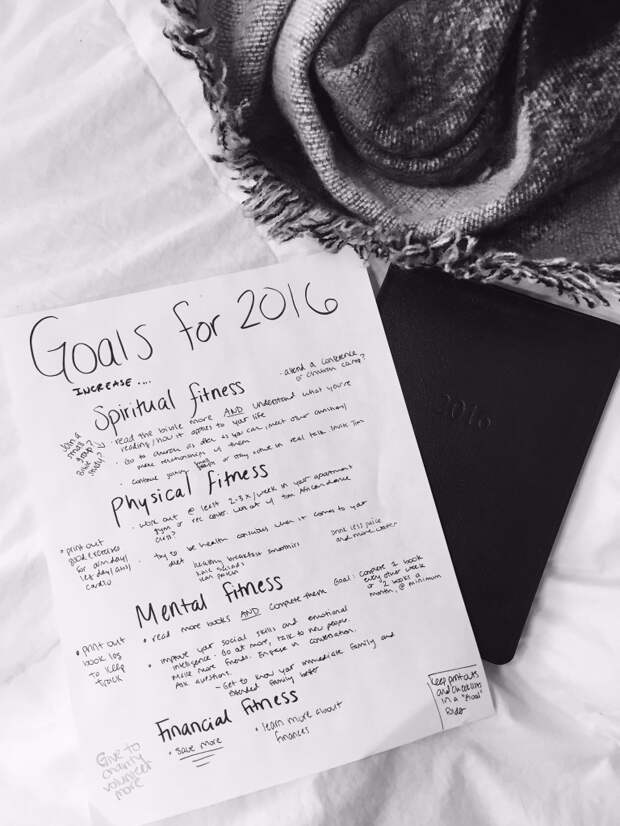 Goals for 2016
INCREASE....
Spiritual fitness
• attend a conference
or church camp?
Join a
small
group?
Bible
study?
• read the bible more AND understand what you're
reading/how it applies to your life
• Go to church as often as you can, meet other
make relationships w/ them
• continue going or stay active in real talk. Invite Tim
Physical fitness
• work out @ least 2-3x/week in your apartment
gym or rec center. work out w/ Tim African dance
club?
• print out
good exercises
for arm day/
leg day/abs/
cardio
• try to be health conscious when it comes to your
diet
healthy breakfast smoothies
kale salads
lean protein
Drink less juice
and more water
Mental fitness
• read more books AND complete them Goal: complete 1 book
every other week
or 2 books a
month, @ minimum
• print out
book log
to keep
track
• improve your social skills and emotional
intelligence. Go out more, talk to new people.
Make more friends. Engage in conversation.
Ask questions.
- Get to know your immediate family and
extended family better
Financial fitness
• save more
• learn more about
finances
Keep printouts
and checklists
in a "Goal"
Binder
Give to
charity
volunteer
more
2016